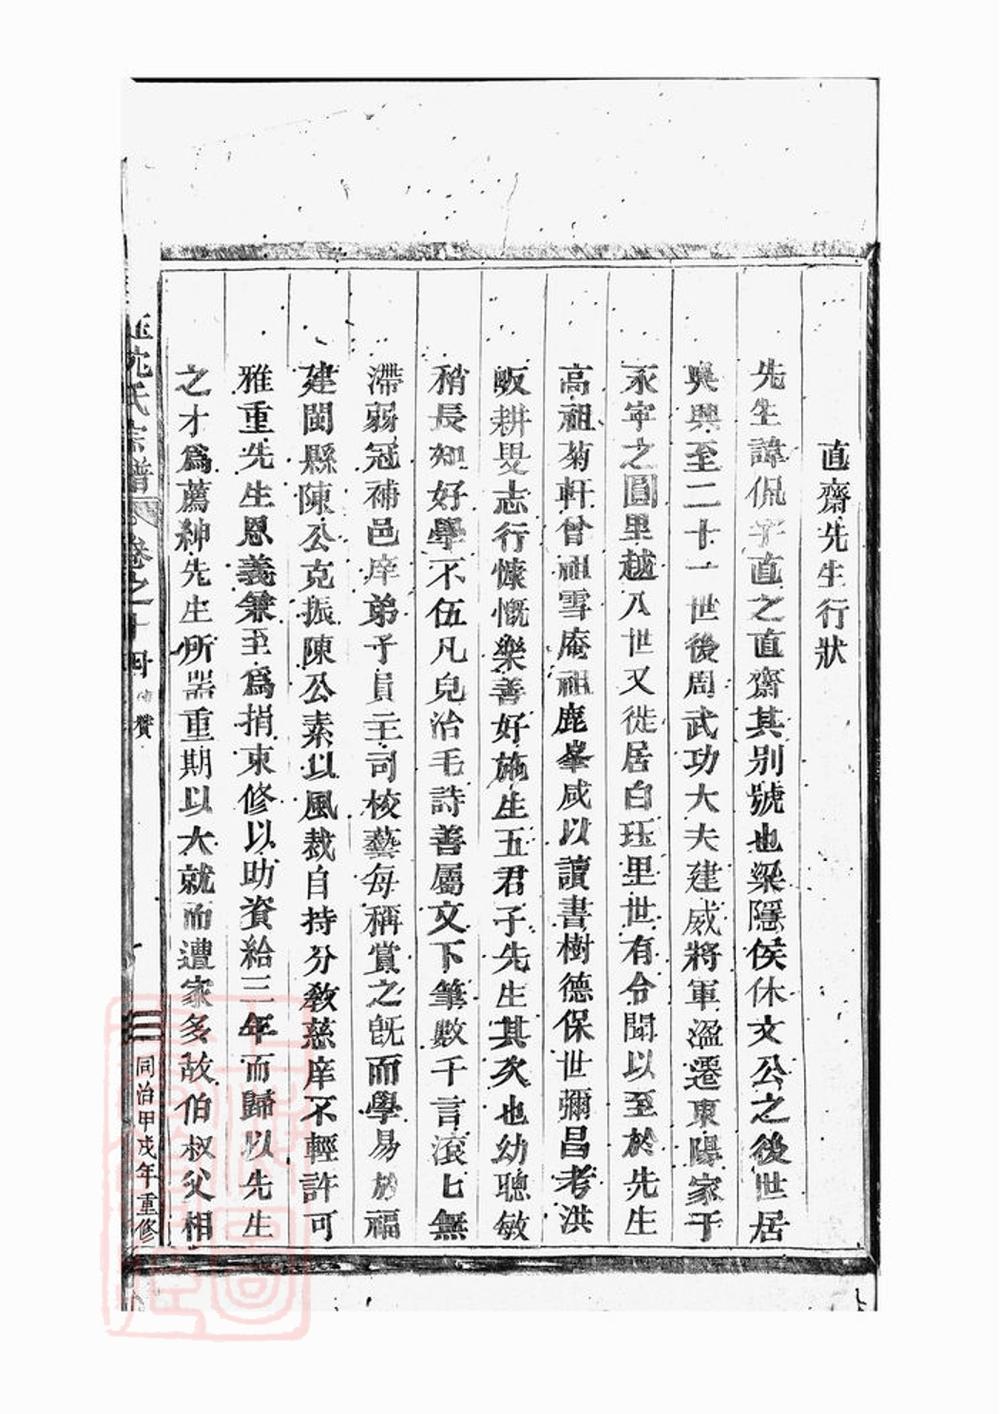 直齋先生行狀
先生諱侃字直之直齋其別號也梁隱侯休文公之後世居
吳興至二十一世後周武功大夫建威將軍溫遷東陽家于
永寧之圓里越八世又徙居白珏里世有令聞以至於先生
高祖菊軒曾祖雪庵祖鹿峯咸以讀書樹德保世彌昌考洪
畈耕叟志行慷慨樂善好施生五君子先生其次也幼聰敏
稍長知好學不伍凡兒治毛詩善屬文下筆數千言滾匕無
滯弱冠補邑庠弟子員主司校藝每稱賞之旣而學易於福
建閩縣陳公克振陳公素以風裁自持分敎慈庠不輕許可
雅重先生恩義兼至爲捐束修以助資給三年而歸以先生
之才爲薦紳先生所器重期以大就而遭家多故伯叔父相
沈氏宗譜 卷之十四 傳贊 同治甲戌年重修